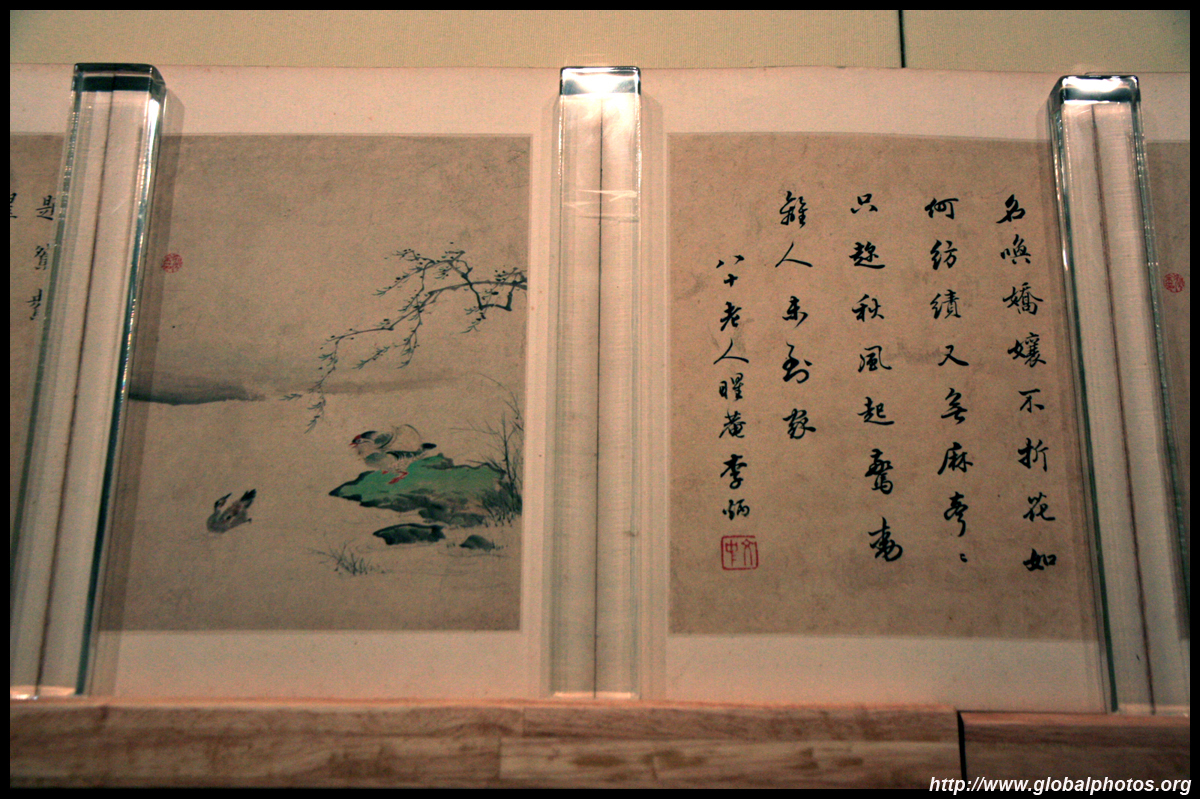 名喚嬌孃不折花如
何紡績又無麻聲〻
只趂秋風起驚動
離人未到家
八十老人曜菴李炳
文中
http://www.globalphotos.org